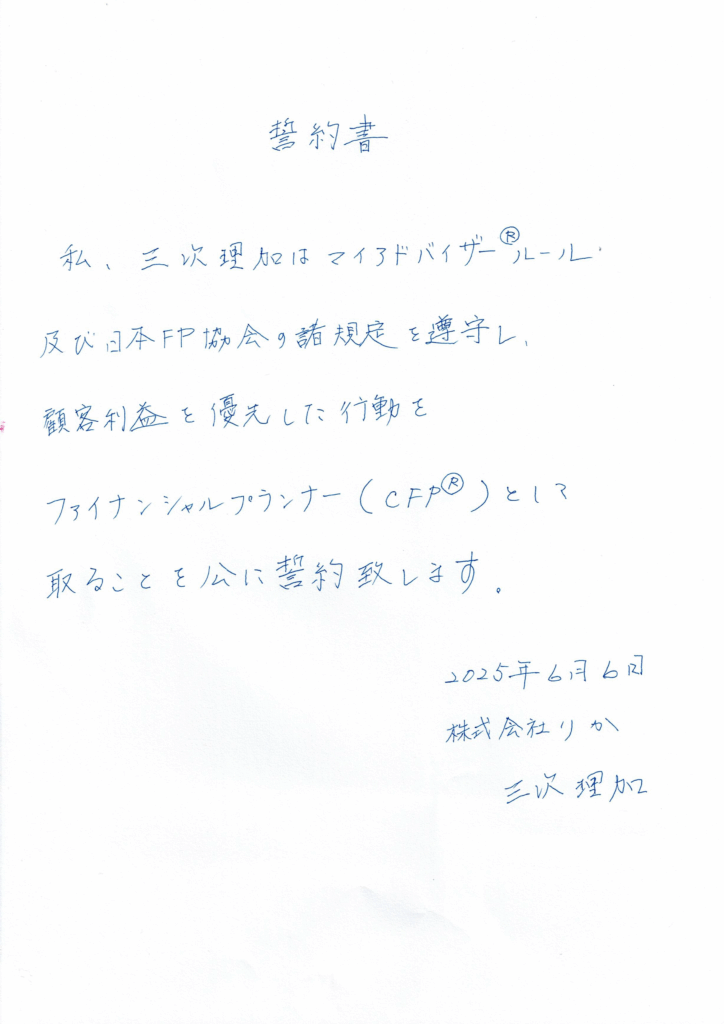 誓約書
私、三次理加はマイアドバイザー®ルール
及び日本FP協会の諸規定を遵守し、
顧客利益を優先した行動を
ファイナンシャルプランナー(CFP®)として
取ることを公に誓約致します。
2025年6月6日
株式会社りか
三次理加